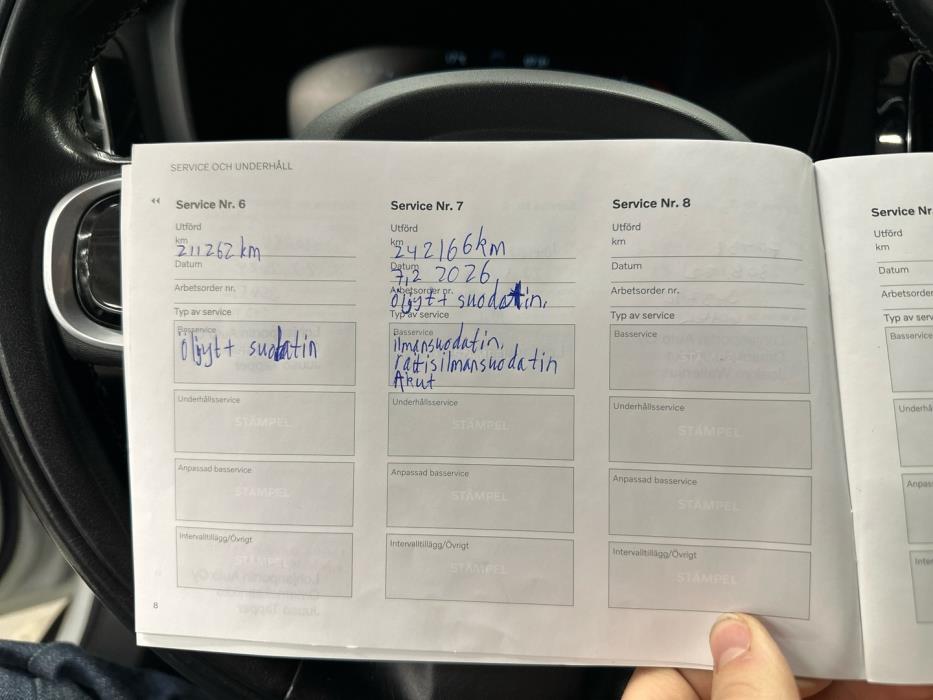 SERVICE OCH UNDERHÅLL
Service Nr. 6
Utförd
km
211262 km
Datum
Arbetsorder nr.
Typ av service
Basservice
Öljyt+ suodatin
Underhållsservice
STÄMPEL
Anpassad basservice
STÄMPEL
Intervalltillägg/Övrigt
STÄMPEL
8
Service Nr. 7
Utförd
km
242166km
Datum
7,2 2026
Arbetsorder nr.
Öljyt+ suodatin,
Typ av service
Basservice
ilmansuodatin,
raitisilmansuodatin
Akut
Underhållsservice
STÄMPEL
Anpassad basservice
STÄMPEL
Intervalltillägg/Övrigt
STÄMPEL
Service Nr. 8
Utförd
km
Datum
Arbetsorder nr.
Typ av service
Basservice
Underhållsservice
STÄMPEL
Anpassad basservice
STÄMPEL
Intervalltillägg/Övrigt
STÄMPEL
Service Nr
Utförd
km
Datum
Arbetsorder
Typ av serv
Basservice
Underhå
Anpas
Inter